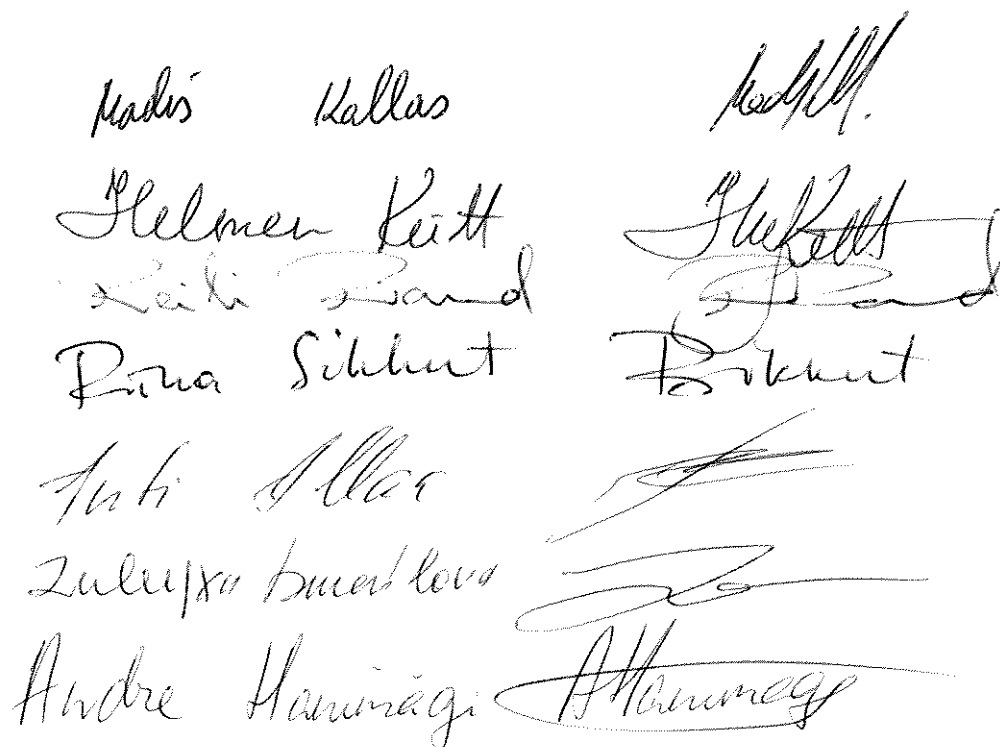 Madis Kallas
Helmen Kütt
Reili Rand
Riina Sikkut Sikkut
Anti Allas
Züleyxa Izmailova
Andre Hanimägi AHanimägi